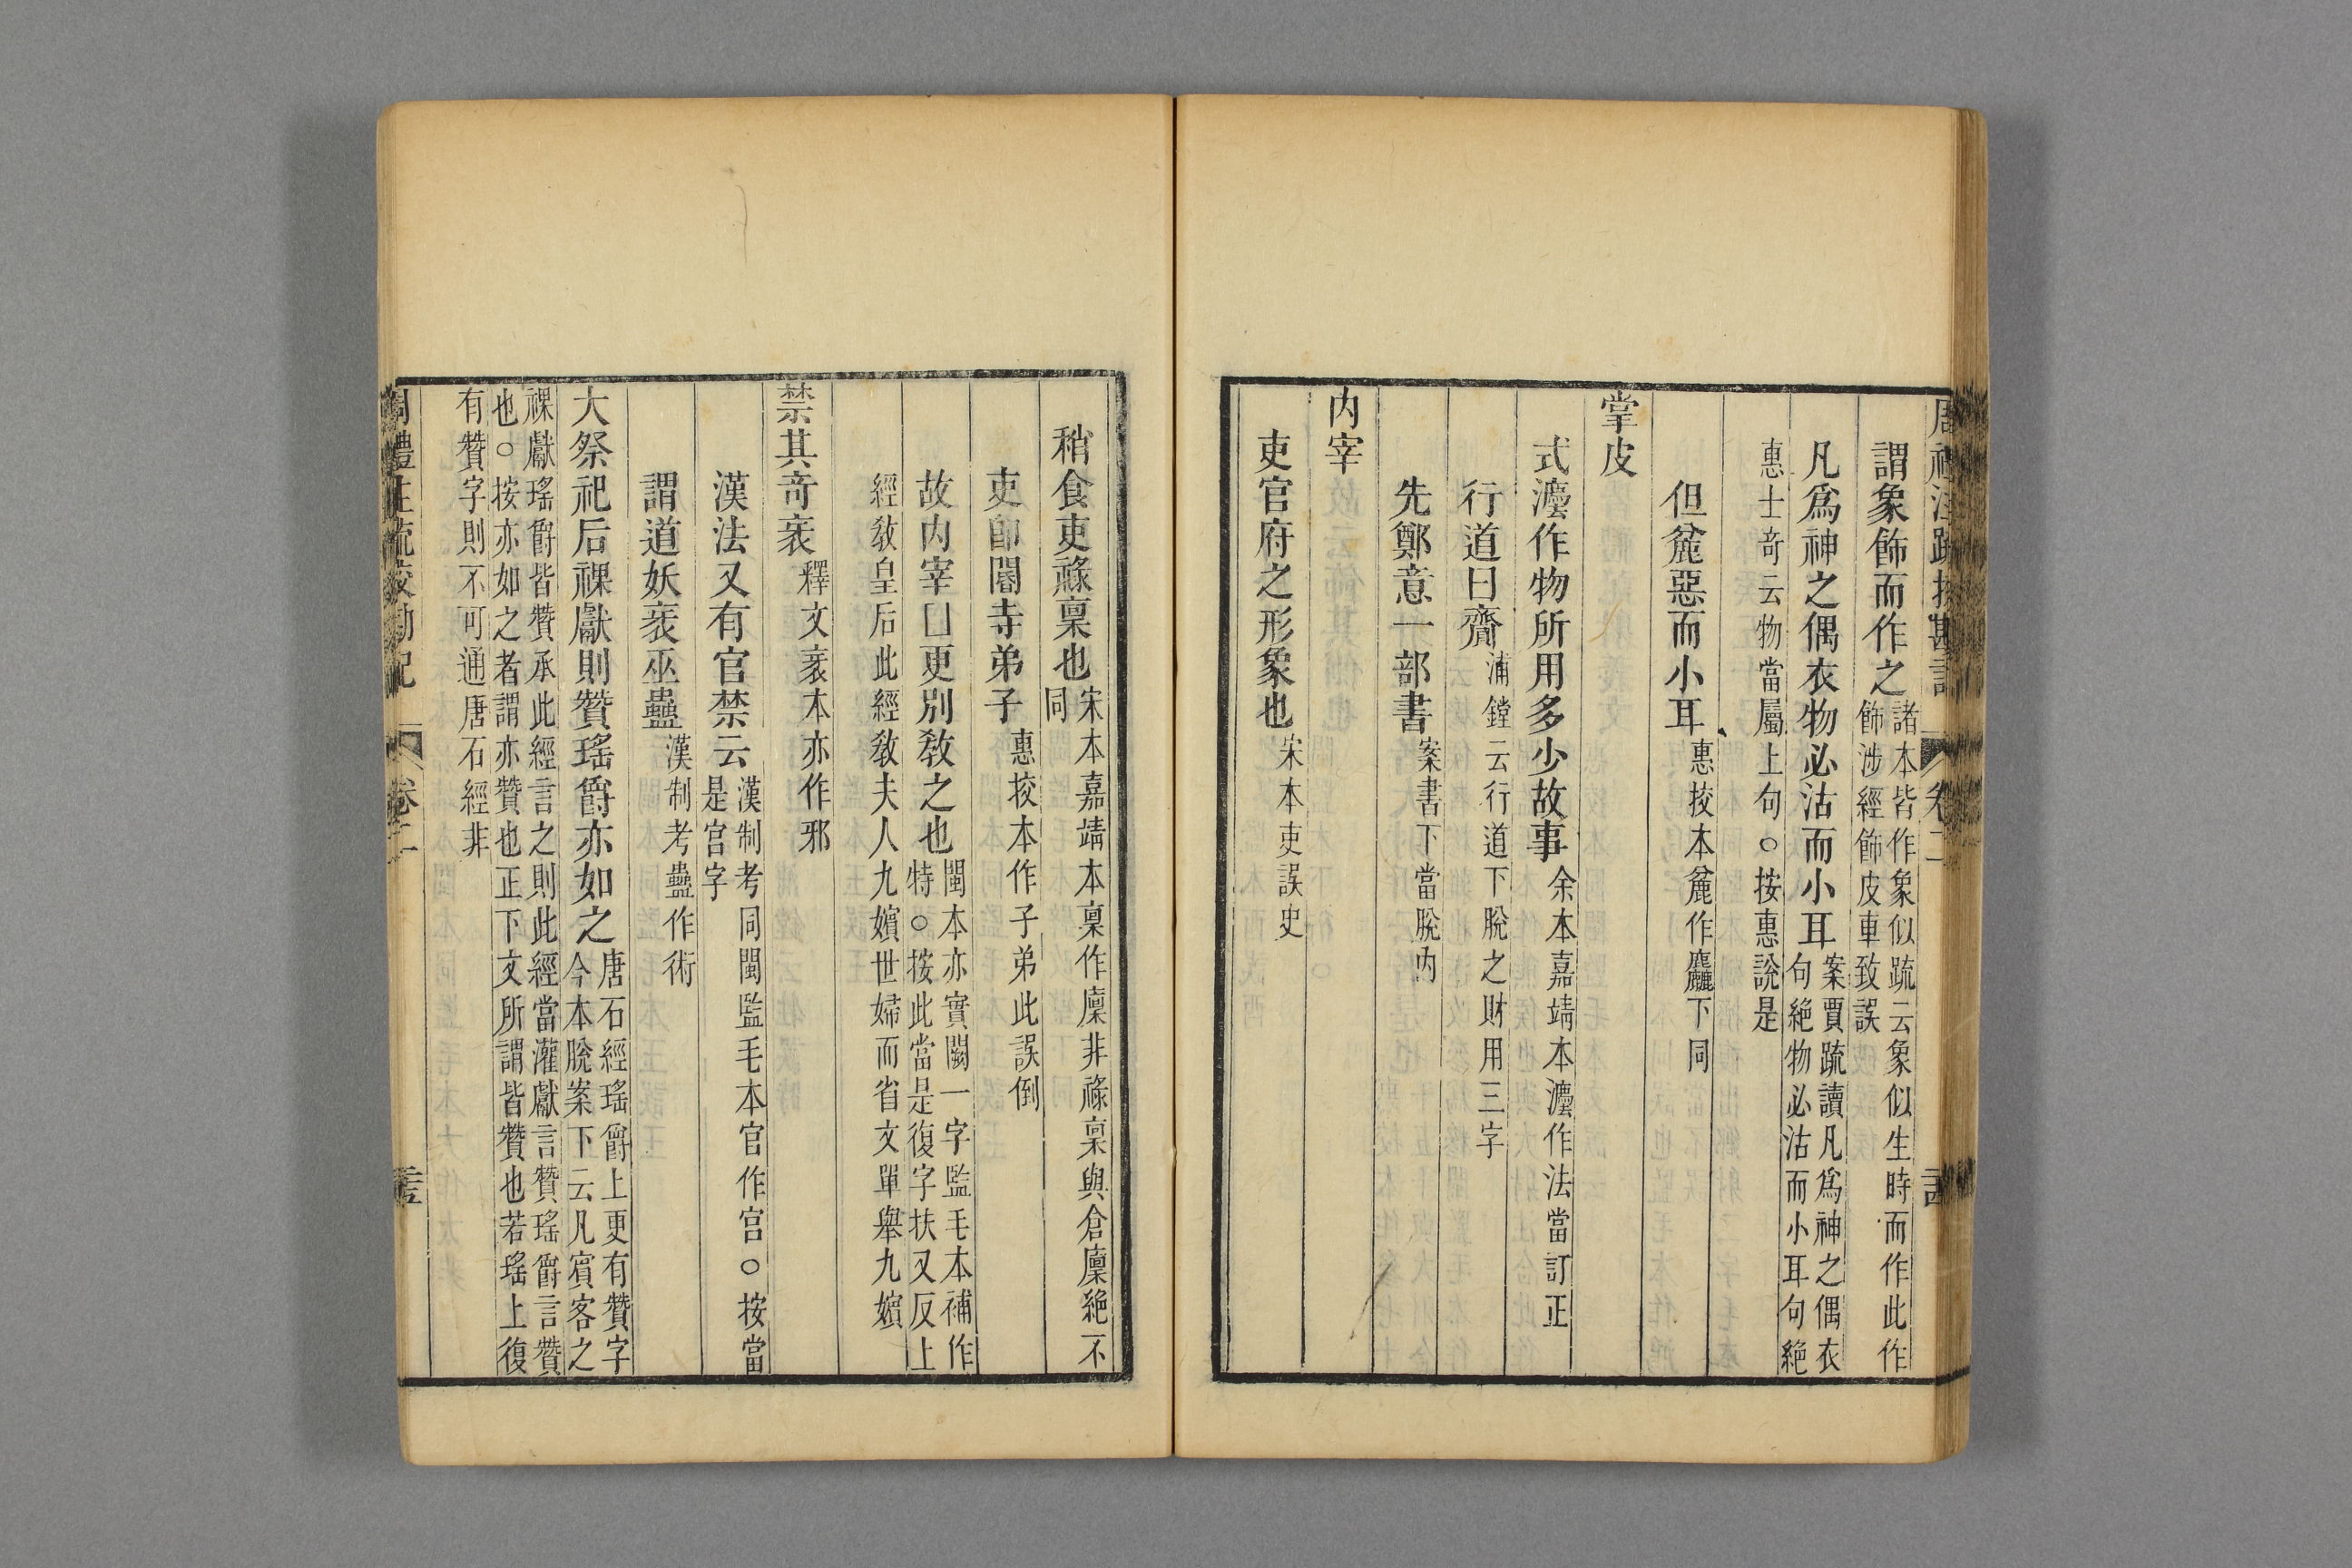 周禮注疏挍勘記 卷二
謂象飾而作之諸本皆作象似疏云象似生時而作此作
飾涉經飾皮車致誤
凡爲神之偶衣物必沽而小耳案賈疏讀凡爲神之偶衣
句絶物必沽而小耳句絶
惠士奇云物當屬上句○按惠說是
但麄惡而小耳惠挍本麄作麤下同
掌皮
式灋作物所用多少故事余本嘉靖本灋作法當訂正
行道曰齎浦鏜云行道下脫之財用三字
先鄭意一部書案書下當脫內
內宰
吏官府之形象也宋本吏誤史
稍食吏祿稟也宋本嘉靖本稟作廩非祿稟與倉廩絶不
同
吏卽閽寺弟子惠挍本作子弟此誤倒
故內宰囗更別教之也閩本亦實闕一字監毛本補作
特○按此當是復字扶又反上
經教皇后此經教夫人九嬪世婦而省文單舉九嬪
禁其奇衺釋文衺本亦作邪
漢法又有官禁云漢制考同閩監毛本官作宫○按當
是宫字
謂道妖衺巫蠱漢制考蠱作術
大祭祀后祼獻則贊瑤爵亦如之唐石經瑤爵上更有贊字
今本脫案下云凡賓客之
祼獻瑤爵皆贊承此經言之則此經當灌獻言贊瑤爵言贊
也○按亦如之者謂亦贊也正下文所謂皆贊也若瑤上復
有贊字則不可通唐石經非
周禮注疏挍勘記 卷二